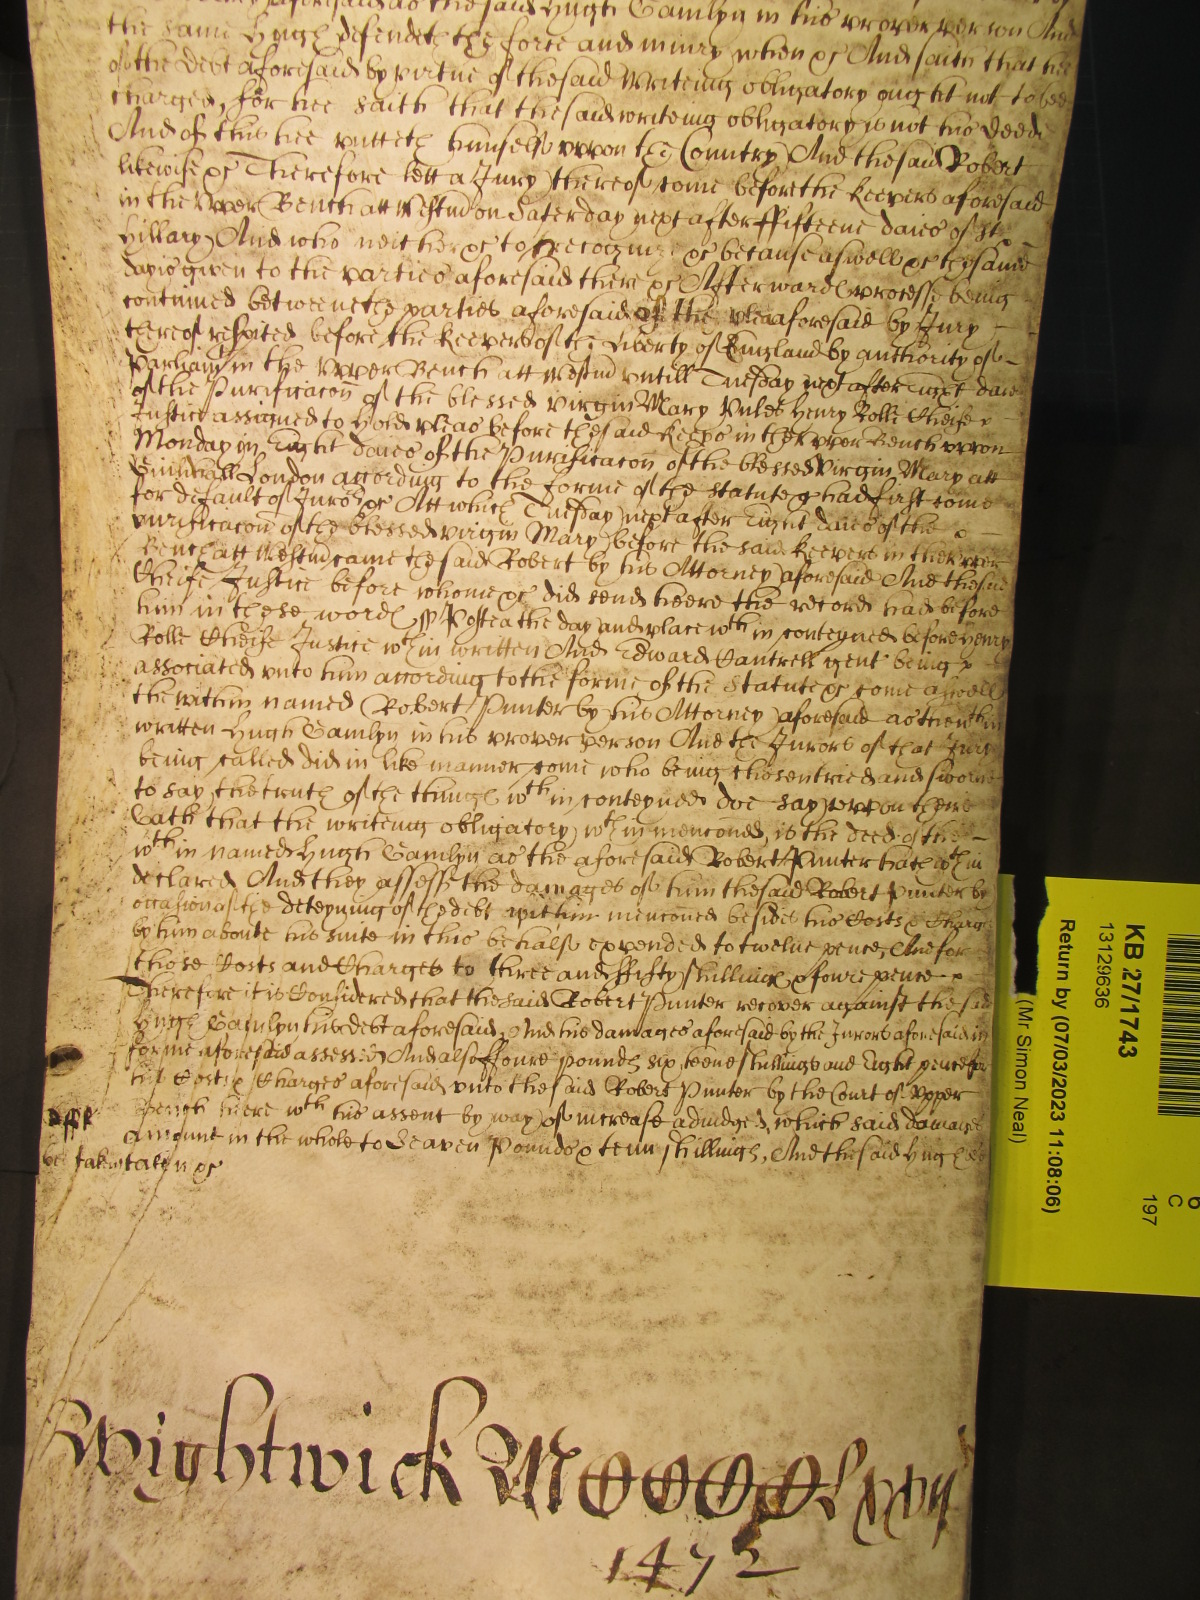 aforesaid as the said Hugh Gamlyn in his proper person And
the same Hugh defendeth the force and iniury when &c And saith that hee
of the debt aforesaid by virtue of the said writeing obligatory ought not to bee
charged, for hee saith that the said writeing obligatory is not his deede
And of this hee putteth himselfe vppon the Country And the said Robert
likewise &c Therefore lett a Jury thereof come before the keepers aforesaid
in the vpper Bench att Westm on Saterday next after ffifteene daies of St
Hillary And who neither &c to recognize &c because aswell &c the same
day is given to the parties aforesaid there &c Afterwards processe being
contiued betweene the parties aforesaid of the plea aforesaid by Jury
thereof respited before the keepers of the liberty of England by authority of
Parliamt in the vpper Bench att Westm vntill Tuesday next after Eight daies
of the Purificacon of the blessed virgin Mary vnles Henry Rolle Cheife
Justice assigned to hold pleas before the said keeps in the vpper Bench vppon
Monday in Eight daies of the Purificacon of the blessed virgin Mary att
Guildhall London according to the forme of the statute &c had first come
for default of Jurors &c Att which Tuesday next after Eight daies of the
purificacon of the blessed virgin Mary before the said keepers in the vpper
Bench att Westm came the said Robert by his Attorney aforesaid And the said
Cheife Justice before whome &c did send heere the record had before
him in these words ss Postea the day and place wth in conteyned before Henry
Rolle Cheife Justice wth in written And Edward Cantrell gent being
associated vnto him according to the forme of the statute &c come aswell
the within named Robert Punter by his Attorney aforesaid as the wth in
written Hugh Gamlyn in his proper person And the Jurors of that Jury
being called did in like manner come who being chosen tried and sworne
to say the truth of the things wth in conteyned doe say vppon their
Oath that the writeing obligatory wth in menconed, is the deed of the
wth in named Hugh Gamlyn as the aforesaid Robert Punter hath wth in
declared And they assesse the damages of him the said Robert Punter by
occasion of the deteyning of the debt within menconed besides his Costs & Charges
by him aboute his suite in this behalfe expended to twelue pence, And for
those Costs and Charges to three and ffifty shillings & foure pence
Therefore it is Considered that the said Robert Punter recover against the said
Hugh Gamlyn his debt aforesaid, And his damages aforesaid by the Jurors aforesaid in
forme aforesaid assessed And also ffoure pounds sixteene shillings and Eight pence for
his Costs & Charges aforesaid vnto the said Robert Punter by the Court of Vpper
Bench heere wth his assent by way of increase adiudged, which said damages
amount in the whole to Seaven Pounds & tenn shillings, And the said Hugh
be taken &c
Wightwick
1472
KB 27/1743
13129636
Return by (07/03/2023 11:08:06)
(Mr Simon Neal)
6
C
197